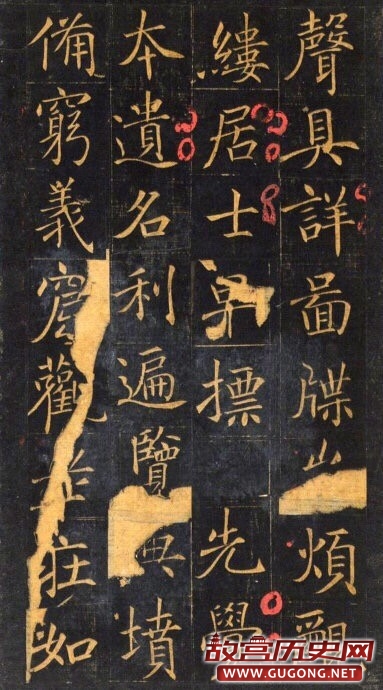 聲具詳啚牒煩覼
縷居士早標先
本遺名利遍覽典墳
備窮義觀如
故宫历史网
WWW.GUGONG.NET